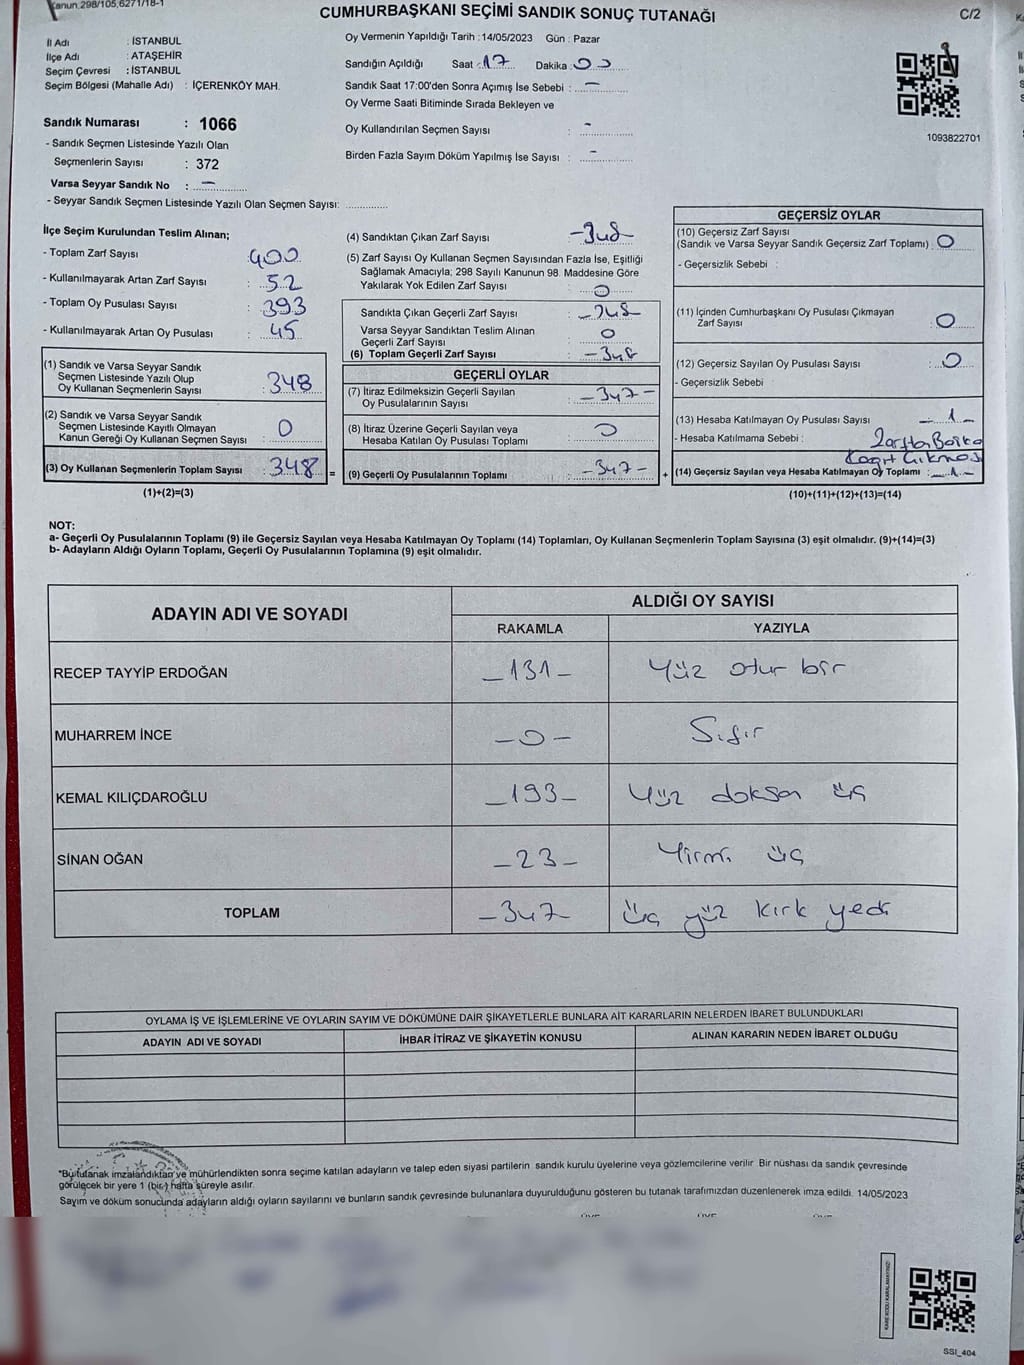 Kanun.298/105,6271/18-1
CUMHURBAŞKANI SEÇİMİ SANDIK SONUÇ TUTANAĞI
C/2
İl Adı : İSTANBUL
İlçe Adı : ATAŞEHİR
Seçim Çevresi : İSTANBUL
Seçim Bölgesi (Mahalle Adı) : İÇERENKÖY MAH.
Oy Vermenin Yapıldığı Tarih :14/05/2023 Gün : Pazar
Sandığın Açıldığı Saat : 17 Dakika : 00
Sandık Saat 17:00'den Sonra Açımış İse Sebebi : -
Oy Verme Saati Bitiminde Sırada Bekleyen ve
Oy Kullandırılan Seçmen Sayısı : -
Birden Fazla Sayım Döküm Yapılmış İse Sayısı : -
1093822701
Sandık Numarası : 1066
- Sandık Seçmen Listesinde Yazılı Olan
Seçmenlerin Sayısı : 372
Varsa Seyyar Sandık No : -
- Seyyar Sandık Seçmen Listesinde Yazılı Olan Seçmen Sayısı:
İlçe Seçim Kurulundan Teslim Alınan;
- Toplam Zarf Sayısı : 400
- Kullanılmayarak Artan Zarf Sayısı : 52
- Toplam Oy Pusulası Sayısı : 393
- Kullanılmayarak Artan Oy Pusulası : 45
(1) Sandık ve Varsa Seyyar Sandık
Seçmen Listesinde Yazılı Olup
Oy Kullanan Seçmenlerin Sayısı : 348
(2) Sandık ve Varsa Seyyar Sandık
Seçmen Listesinde Kayıtlı Olmayan
Kanun Gereği Oy Kullanan Seçmen Sayısı : 0
(3) Oy Kullanan Seçmenlerin Toplam Sayısı : 348
(1)+(2)=(3)
=
(4) Sandıktan Çıkan Zarf Sayısı : -348-
(5) Zarf Sayısı Oy Kullanan Seçmen Sayısından Fazla İse, Eşitliği
Sağlamak Amacıyla; 298 Sayılı Kanunun 98. Maddesine Göre
Yakılarak Yok Edilen Zarf Sayısı : 0
Sandıkta Çıkan Geçerli Zarf Sayısı : -348-
Varsa Seyyar Sandıktan Teslim Alınan
Geçerli Zarf Sayısı : 0
(6) Toplam Geçerli Zarf Sayısı : -348
GEÇERLİ OYLAR
(7) İtiraz Edilmeksizin Geçerli Sayılan
Oy Pusulalarının Sayısı : -347-
(8) İtiraz Üzerine Geçerli Sayılan veya
Hesaba Katılan Oy Pusulası Toplamı : 0
(9) Geçerli Oy Pusulalarının Toplamı : -347-
+
GEÇERSİZ OYLAR
(10) Geçersiz Zarf Sayısı
(Sandık ve Varsa Seyyar Sandık Geçersiz Zarf Toplamı) : 0
- Geçersizlik Sebebi :
(11) İçinden Cumhurbaşkanı Oy Pusulası Çıkmayan
Zarf Sayısı : 0
(12) Geçersiz Sayılan Oy Pusulası Sayısı : 0
- Geçersizlik Sebebi
(13) Hesaba Katılmayan Oy Pusulası Sayısı : -1-
- Hesaba Katılmama Sebebi : Zarftan Başka
Kağıt Çıkması
(14) Geçersiz Sayılan veya Hesaba Katılmayan Oy Toplamı : -1-
(10)+(11)+(12)+(13)=(14)
NOT:
a- Geçerli Oy Pusulalarının Toplamı (9) ile Geçersiz Sayılan veya Hesaba Katılmayan Oy Toplamı (14) Toplamları, Oy Kullanan Seçmenlerin Toplam Sayısına (3) eşit olmalıdır. (9)+(14)=(3)
b- Adayların Aldığı Oyların Toplamı, Geçerli Oy Pusulalarının Toplamına (9) eşit olmalıdır.
ADAYIN ADI VE SOYADI
ALDIĞI OY SAYISI
RAKAMLA YAZIYLA
RECEP TAYYİP ERDOĞAN -131- Yüz otuz bir
MUHARREM İNCE -0- Sıfır
KEMAL KILIÇDAROĞLU -193- Yüz doksan üç
SİNAN OĞAN -23- Yirmi üç
TOPLAM -347 Üç yüz kırk yedi
OYLAMA İŞ VE İŞLEMLERİNE VE OYLARIN SAYIM VE DÖKÜMÜNE DAİR ŞİKAYETLERLE BUNLARA AİT KARARLARIN NELERDEN İBARET BULUNDUKLARI
ADAYIN ADI VE SOYADI İHBAR İTİRAZ VE ŞİKAYETİN KONUSU ALINAN KARARIN NEDEN İBARET OLDUĞU
*Bu tutanak imzalandıktan ve mühürlendikten sonra seçime katılan adayların ve talep eden siyasi partilerin sandık kurulu üyelerine veya gözlemcilerine verilir. Bir nüshası da sandık çevresinde
görülecek bir yere 1 (bir) hafta süreyle asılır.
Sayım ve döküm sonucunda adayların aldığı oyların sayılarını ve bunların sandık çevresinde bulunanlara duyurulduğunu gösteren bu tutanak tarafımızdan düzenlenerek imza edildi. 14/05/2023
KARE KODU KARALAMAYINIZ!
SSI_404